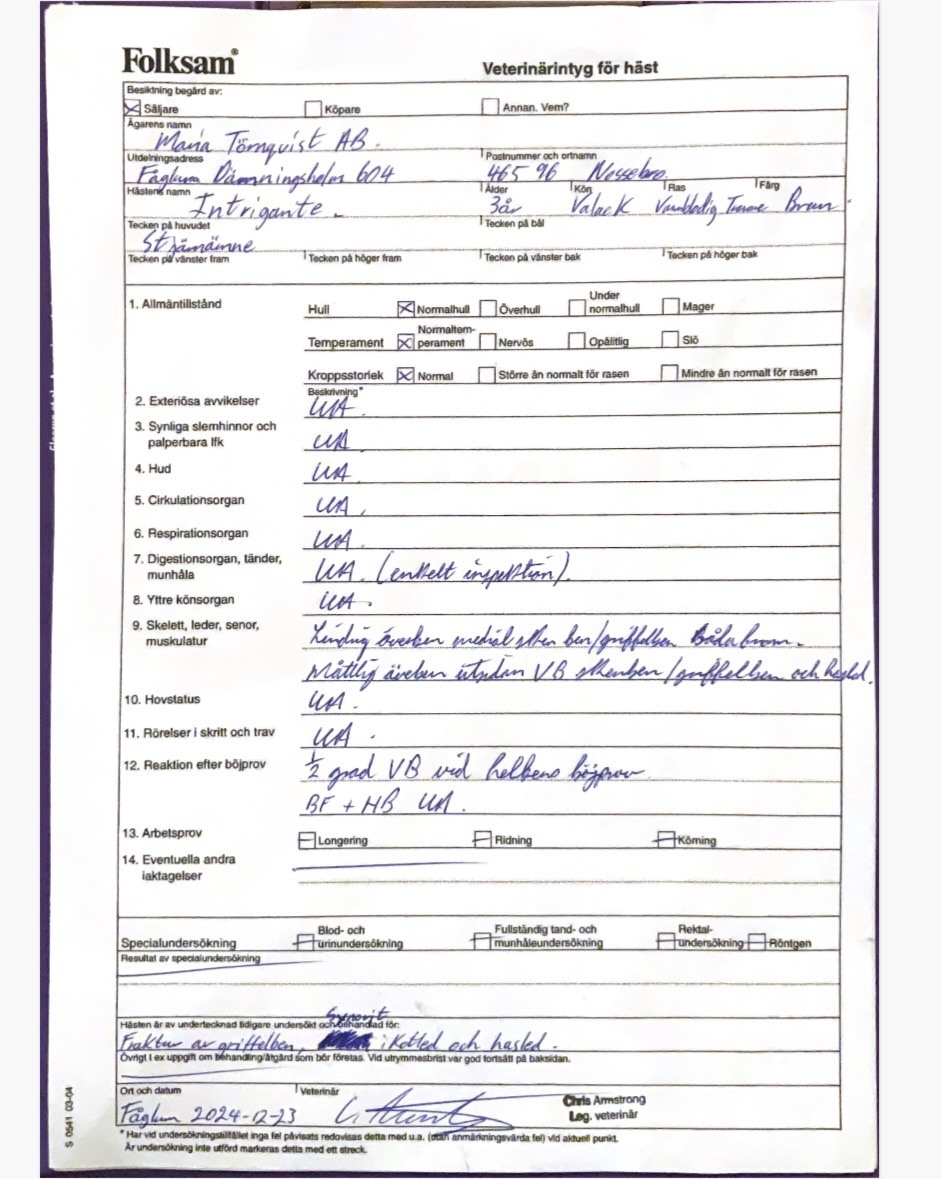 Folksam®
Veterinärintyg för häst
Besiktning begärd av:
Säljare Köpare Annan. Vem?
Ägarens namn
Maria Törnquist AB.
Utdelningsadress Postnummer och ortnamn
Fåglum Dämningsholm 604 465 96 Nossebro
Hästens namn Ålder Kön Ras Färg
Intrigante 3år Valack Varmblodig Travare Brun
Tecken på huvudet Tecken på bål
Stjärnämne
Tecken på vänster fram Tecken på höger fram Tecken på vänster bak Tecken på höger bak
1. Allmäntillstånd
Hull Normalhull Överhull Under normalhull Mager
Temperament Normaltemperament Nervös Opålitlig Slö
Kroppsstorlek Normal Större än normalt för rasen Mindre än normalt för rasen
Beskrivning*
2. Exteriösa avvikelser UA.
3. Synliga slemhinnor och
palperbara lfk UA
4. Hud UA
5. Cirkulationsorgan UA.
6. Respirationsorgan UA.
7. Digestionsorgan, tänder,
munhåla UA. (enkelt inspektion).
8. Yttre könsorgan UA.
9. Skelett, leder, senor,
muskulatur Lindrig överben medial skenben/griffelben Båda fram.
Måttlig överben utsidan VB skenben/griffelben och hasled.
10. Hovstatus UA.
11. Rörelser i skritt och trav UA.
12. Reaktion efter böjprov 1/2 grad VB vid helbens böjprov
BF + HB UA.
13. Arbetsprov Longering Ridning Körning
14. Eventuella andra
iaktagelser
Specialundersökning Blod- och urinundersökning Fullständig tand- och munhåleundersökning Rektalundersökning Röntgen
Resultat av specialundersökning
Hästen är av undertecknad tidigare undersökt och behandlad för:
Synovit
Fraktur av griffelben, i Kotled och hasled.
Övrigt t ex uppgift om behandling/åtgärd som bör företas. Vid utrymmesbrist var god fortsätt på baksidan.
Ort och datum Veterinär
Fåglum 2024-12-23
Chris Armstrong
Leg. veterinär
* Har vid undersökningstillfället inga fel påvisats redovisas detta med u.a. (utan anmärkningsvärda fel) vid aktuell punkt.
Är undersökning inte utförd markeras detta med ett streck.
S 0541 03-04